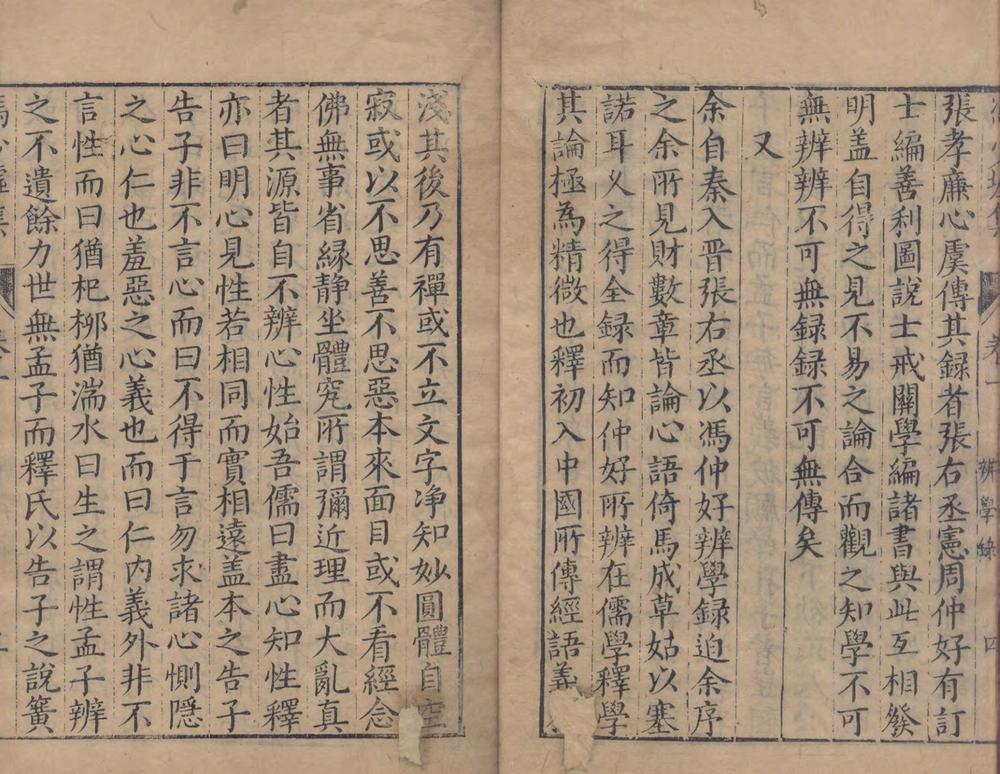 張孝廉心虞傳其録者張右丞憲周仲好有訂
士編善利圖說士戒關學編諸書與此互相發
明盖自得之見不易之論合而觀之知學不可
無辨辨不可無録録不可無傳矣
又
余自秦入晋張右丞以馮仲好辨學録迫余序
之余所見財數章皆論心語倚馬成草姑以塞
諾耳乂之得全録而知仲好所辨在儒學釋學
其論極為精微也釋初入中國所傳經語義
淺其後乃有禪或不立文字净知妙圓體自空
寂或以不思善不思惡本來面目或不看經念
佛無事省緣静坐體究所謂彌近理而大亂真
者其源皆自不辨心性始吾儒曰盡心知性釋
亦曰明心見性若相同而實相遠盖本之告子
告子非不言心而曰不得于言勿求諸心惻隱
之心仁也羞惡之心義也而曰仁内義外非不
言性而曰猶杞柳猶湍水曰生之謂性孟子辨
之不遺餘力世無孟子而釋氏以告子之說簧
卷一
辨學録
四